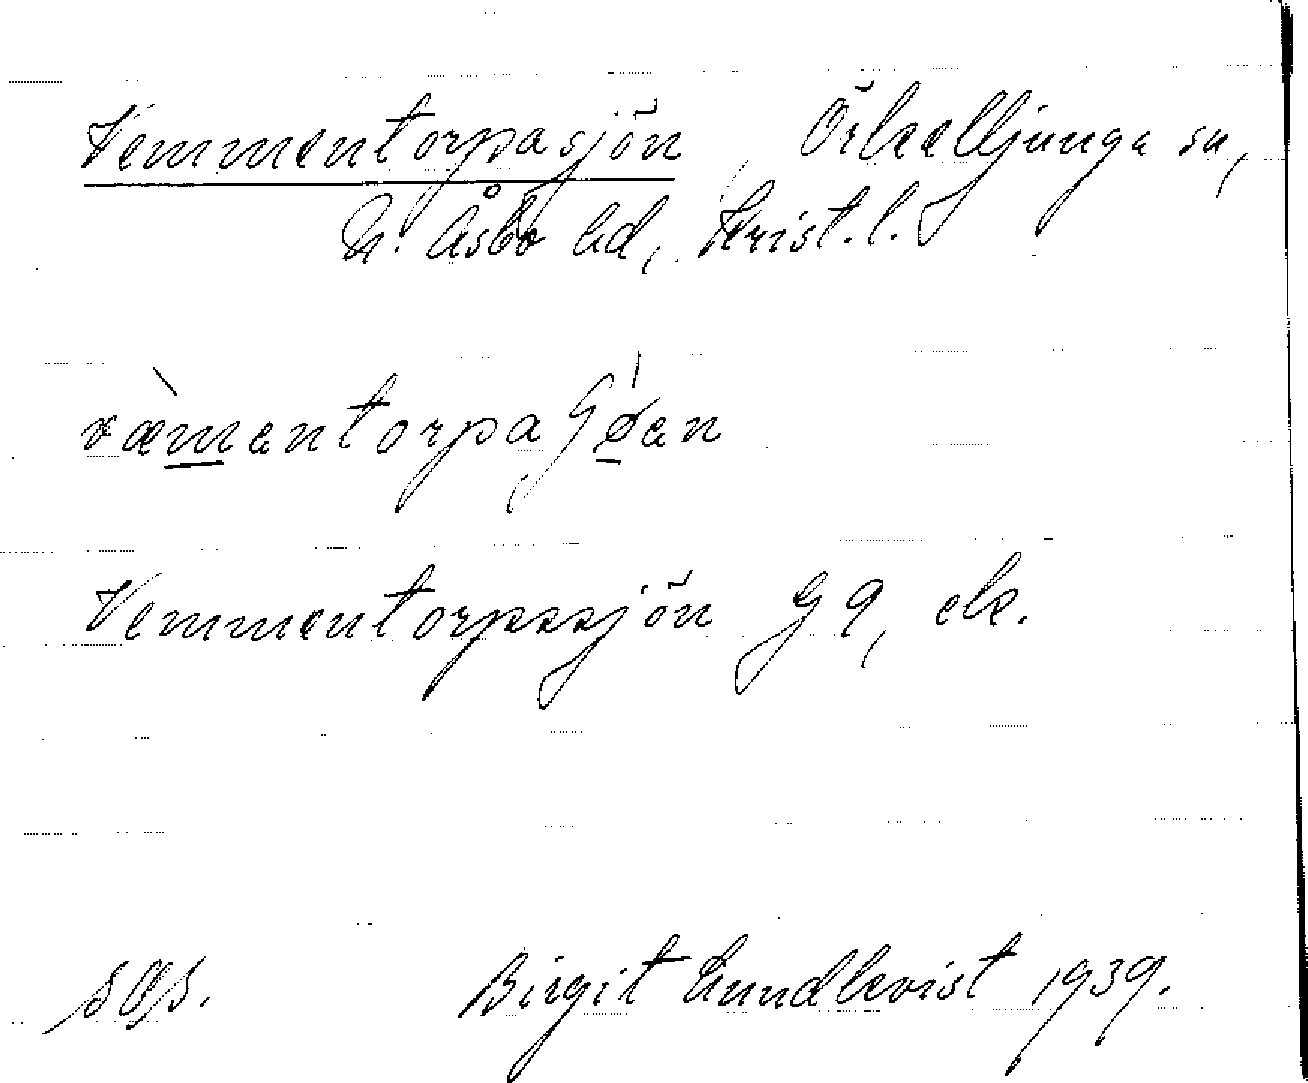 Vemmentorpasjön, Örkelljunga sn,
N. Åsbo hd, Krist. l.
væ̀mentorpaʃǿen
Vemmentorpssjön G 9, ek.
Birgit Lundkvist 1939.